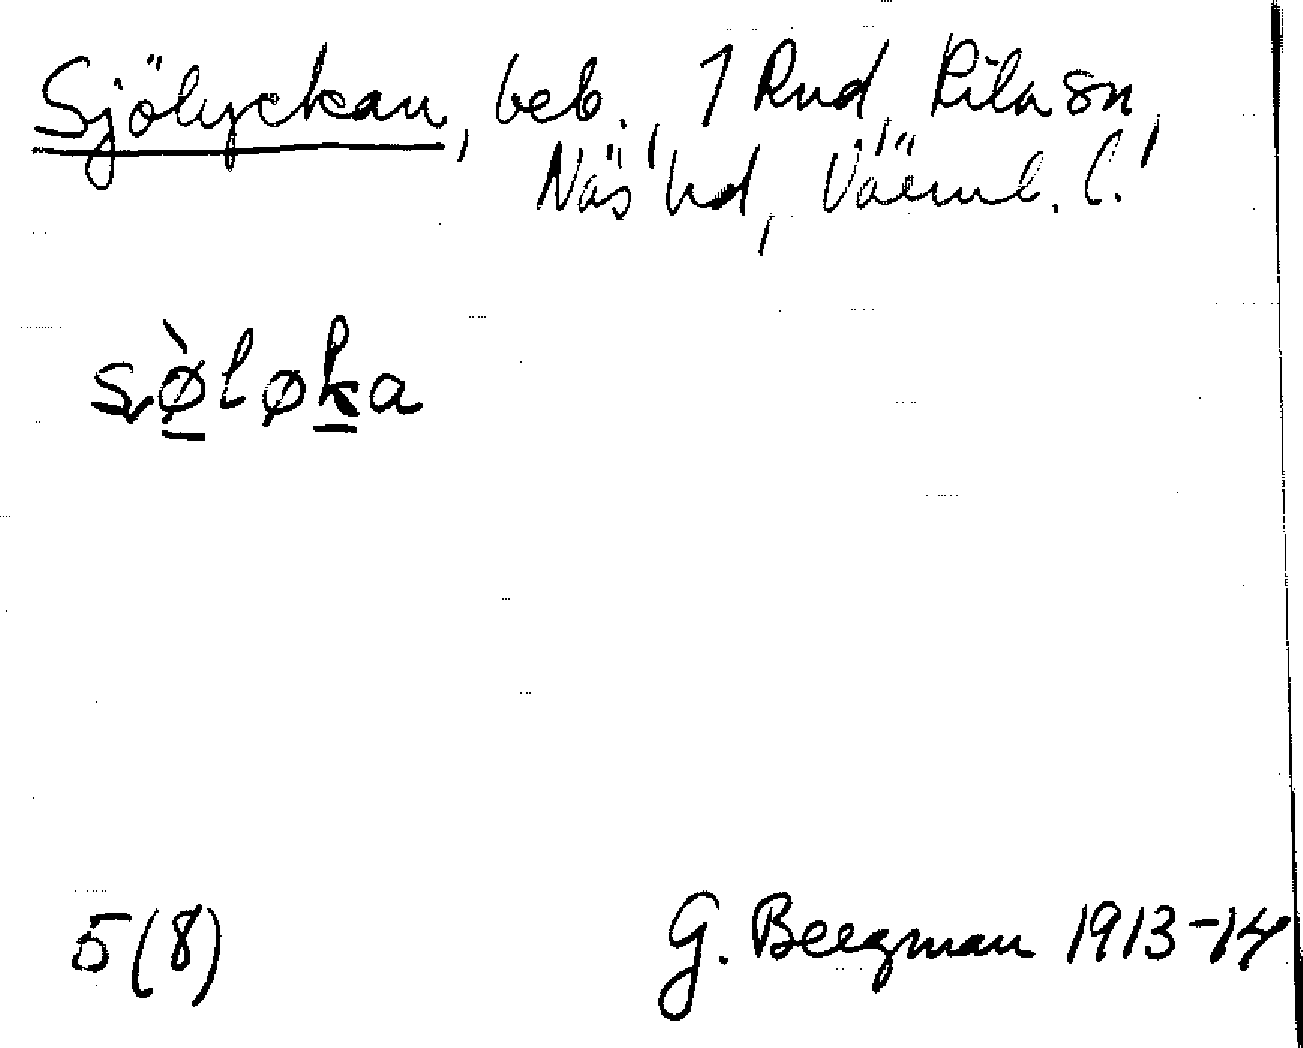 Sjölyckan, beb., 1 Rud, Kila sn,
Näs hd, Värml. l.
sø̱̀løḵa
5(8)
G. Bergman 1913-14